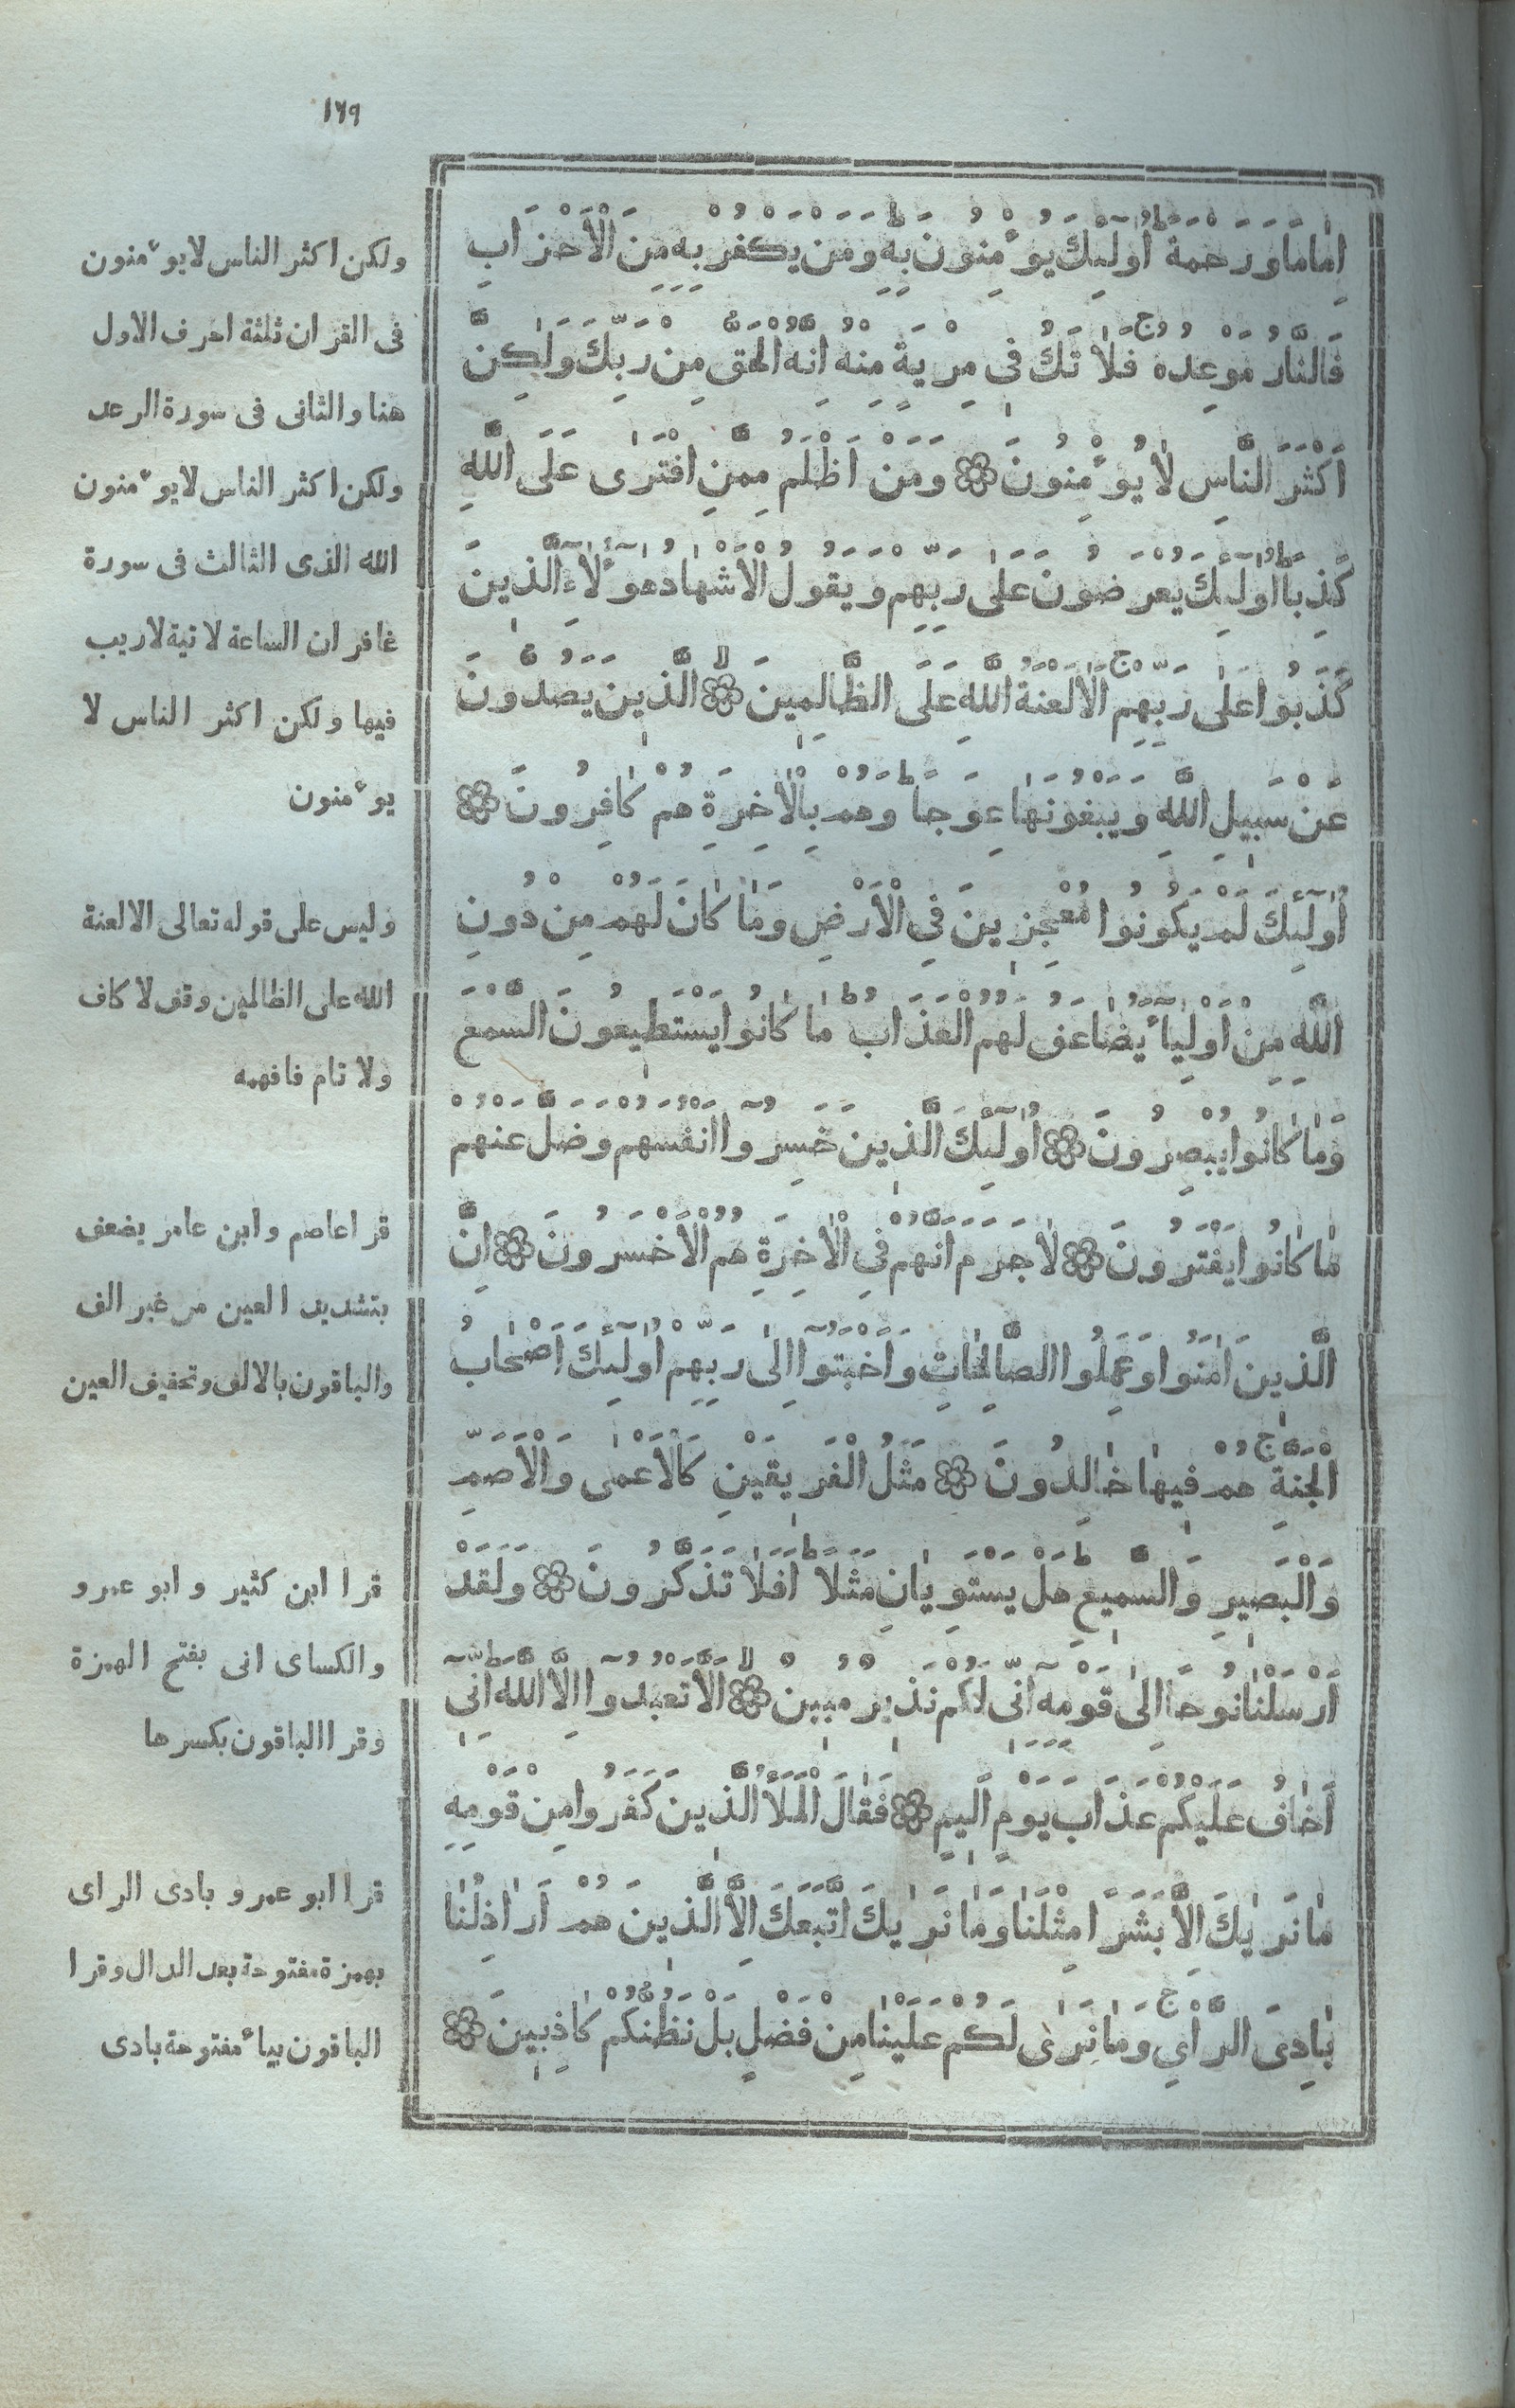 ١٦٩
اِمَامًا وَرَحْمَةً ط اُولٰٓئِكَ يُؤْمِنُونَ بِهٖ ط وَمَنْ يَكْفُرْ بِهٖ مِنَ الْاَحْزَابِ
فَالنَّارُ مَوْعِدُهُ ج فَلَا تَكُ فِى مِرْيَةٍ مِنْهُ اِنَّهُ الْحَقُّ مِنْ رَبِّكَ وَلٰكِنَّ
اَكْثَرَ النَّاسِ لَا يُؤْمِنُونَ ۝ وَمَنْ اَظْلَمُ مِمَّنِ افْتَرٰى عَلَى اللّٰهِ
كَذِبًا ط اُولٰٓئِكَ يُعْرَضُونَ عَلٰى رَبِّهِمْ وَيَقُولُ الْاَشْهَادُ هٰٓؤُلَآءِ الَّذِينَ
كَذَبُوا عَلٰى رَبِّهِمْ ج اَلَا لَعْنَةُ اللّٰهِ عَلَى الظَّالِمِينَ ۝ لا الَّذِينَ يَصُدُّونَ
عَنْ سَبِيلِ اللّٰهِ وَيَبْغُونَهَا عِوَجًا ط وَهُمْ بِالْاٰخِرَةِ هُمْ كَافِرُونَ ۝
اُولٰٓئِكَ لَمْ يَكُونُوا مُعْجِزِينَ فِى الْاَرْضِ وَمَا كَانَ لَهُمْ مِنْ دُونِ
اللّٰهِ مِنْ اَوْلِيَآءَ يُضَاعَفُ لَهُمُ الْعَذَابُ ط مَا كَانُوا يَسْتَطِيعُونَ السَّمْعَ
وَمَا كَانُوا يُبْصِرُونَ ۝ اُولٰٓئِكَ الَّذِينَ خَسِرُوٓا اَنْفُسَهُمْ وَضَلَّ عَنْهُمْ
مَا كَانُوا يَفْتَرُونَ ۝ لَا جَرَمَ اَنَّهُمْ فِى الْاٰخِرَةِ هُمُ الْاَخْسَرُونَ ۝ اِنَّ
الَّذِينَ اٰمَنُوا وَعَمِلُوا الصَّالِحَاتِ وَاَخْبَتُوٓا اِلٰى رَبِّهِمْ اُولٰٓئِكَ اَصْحَابُ
الْجَنَّةِ ج هُمْ فِيهَا خَالِدُونَ ۝ مَثَلُ الْفَرِيقَيْنِ كَالْاَعْمٰى وَالْاَصَمِّ
وَالْبَصِيرِ وَالسَّمِيعِ ط هَلْ يَسْتَوِيَانِ مَثَلًا ط اَفَلَا تَذَكَّرُونَ ۝ وَلَقَدْ
اَرْسَلْنَا نُوحًا اِلٰى قَوْمِهٖٓ اَنِّى لَكُمْ نَذِيرٌ مُبِينٌ ۝ لا اَلَّا تَعْبُدُوٓا اِلَّا اللّٰهَ ط اِنِّىٓ
اَخَافُ عَلَيْكُمْ عَذَابَ يَوْمٍ اَلِيمٍ ۝ فَقَالَ الْمَلَاُ الَّذِينَ كَفَرُوا مِنْ قَوْمِهٖ
مَا نَرٰيكَ اِلَّا بَشَرًا مِثْلَنَا وَمَا نَرٰيكَ اتَّبَعَكَ اِلَّا الَّذِينَ هُمْ اَرَاذِلُنَا
بَادِىَ الرَّاْىِ ج وَمَا نَرٰى لَكُمْ عَلَيْنَا مِنْ فَضْلٍ بَلْ نَظُنُّكُمْ كَاذِبِينَ ۝
ولكن اكثر الناس لا يوءمنون
فى القران ثلثة احرف الاول
هنا والثانى فى سورة الرعد
ولكن اكثر الناس لا يوءمنون
الله الذى الثالث فى سورة
غافر ان الساعة لاتية لاريب
فيها ولكن اكثر الناس لا
يوءمنون
وليس على قوله تعالى الا لعنة
الله على الظالمين وقف لا كاف
ولا تام فافهمه
قرا عاصم وابن عامر يضعف
بتشديد العين من غير الف
والباقون بالالف وتخفيف العين
قرا ابن كثير وابو عمرو
والكساى انى بفتح الهمزة
وقرا الباقون بكسرها
قرا ابو عمرو بادى الراى
بهمزة مفتوحة بعد الدال وقرا
الباقون بياء مفتوحة بادى